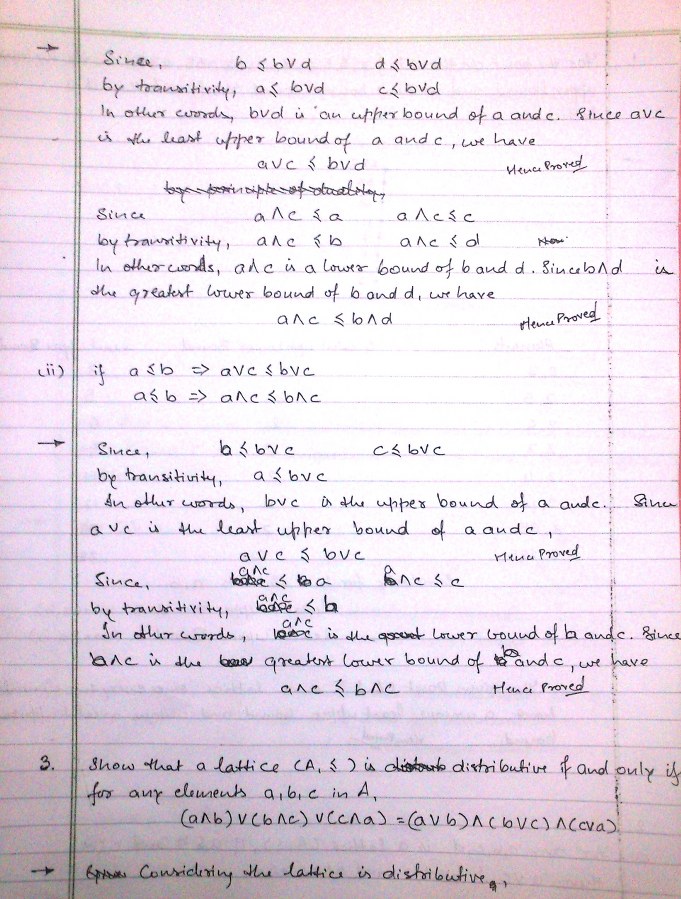 → Since, b ≤ b∨d d ≤ b∨d
by transitivity, a ≤ b∨d c ≤ b∨d
In other words, b∨d is an upper bound of a and c. Since a∨c
is the least upper bound of a and c, we have
a∨c ≤ b∨d Hence Proved
by principle of duality,
Since a∧c ≤ a a∧c ≤ c
by transitivity, a∧c ≤ b a∧c ≤ d
In other words, a∧c is a lower bound of b and d. Since b∧d is
the greatest lower bound of b and d, we have
a∧c ≤ b∧d Hence Proved
(ii) if a ≤ b ⇒ a∨c ≤ b∨c
a ≤ b ⇒ a∧c ≤ b∧c
→ Since, b ≤ b∨c c ≤ b∨c
by transitivity, a ≤ b∨c
In other words, b∨c is the upper bound of a and c. Since
a∨c is the least upper bound of a and c,
a∨c ≤ b∨c Hence Proved
Since, a∧c ≤ a a∧c ≤ c
by transitivity, a∧c ≤ b
In other words, a∧c is the lower bound of b and c. Since
b∧c is the greatest lower bound of b and c, we have
a∧c ≤ b∧c Hence Proved
3. Show that a lattice (A, ≤) is distributive if and only if
for any elements a, b, c in A,
(a∧b)∨(b∧c)∨(c∧a) = (a∨b)∧(b∨c)∧(c∨a)
→ Considering the lattice is distributive,